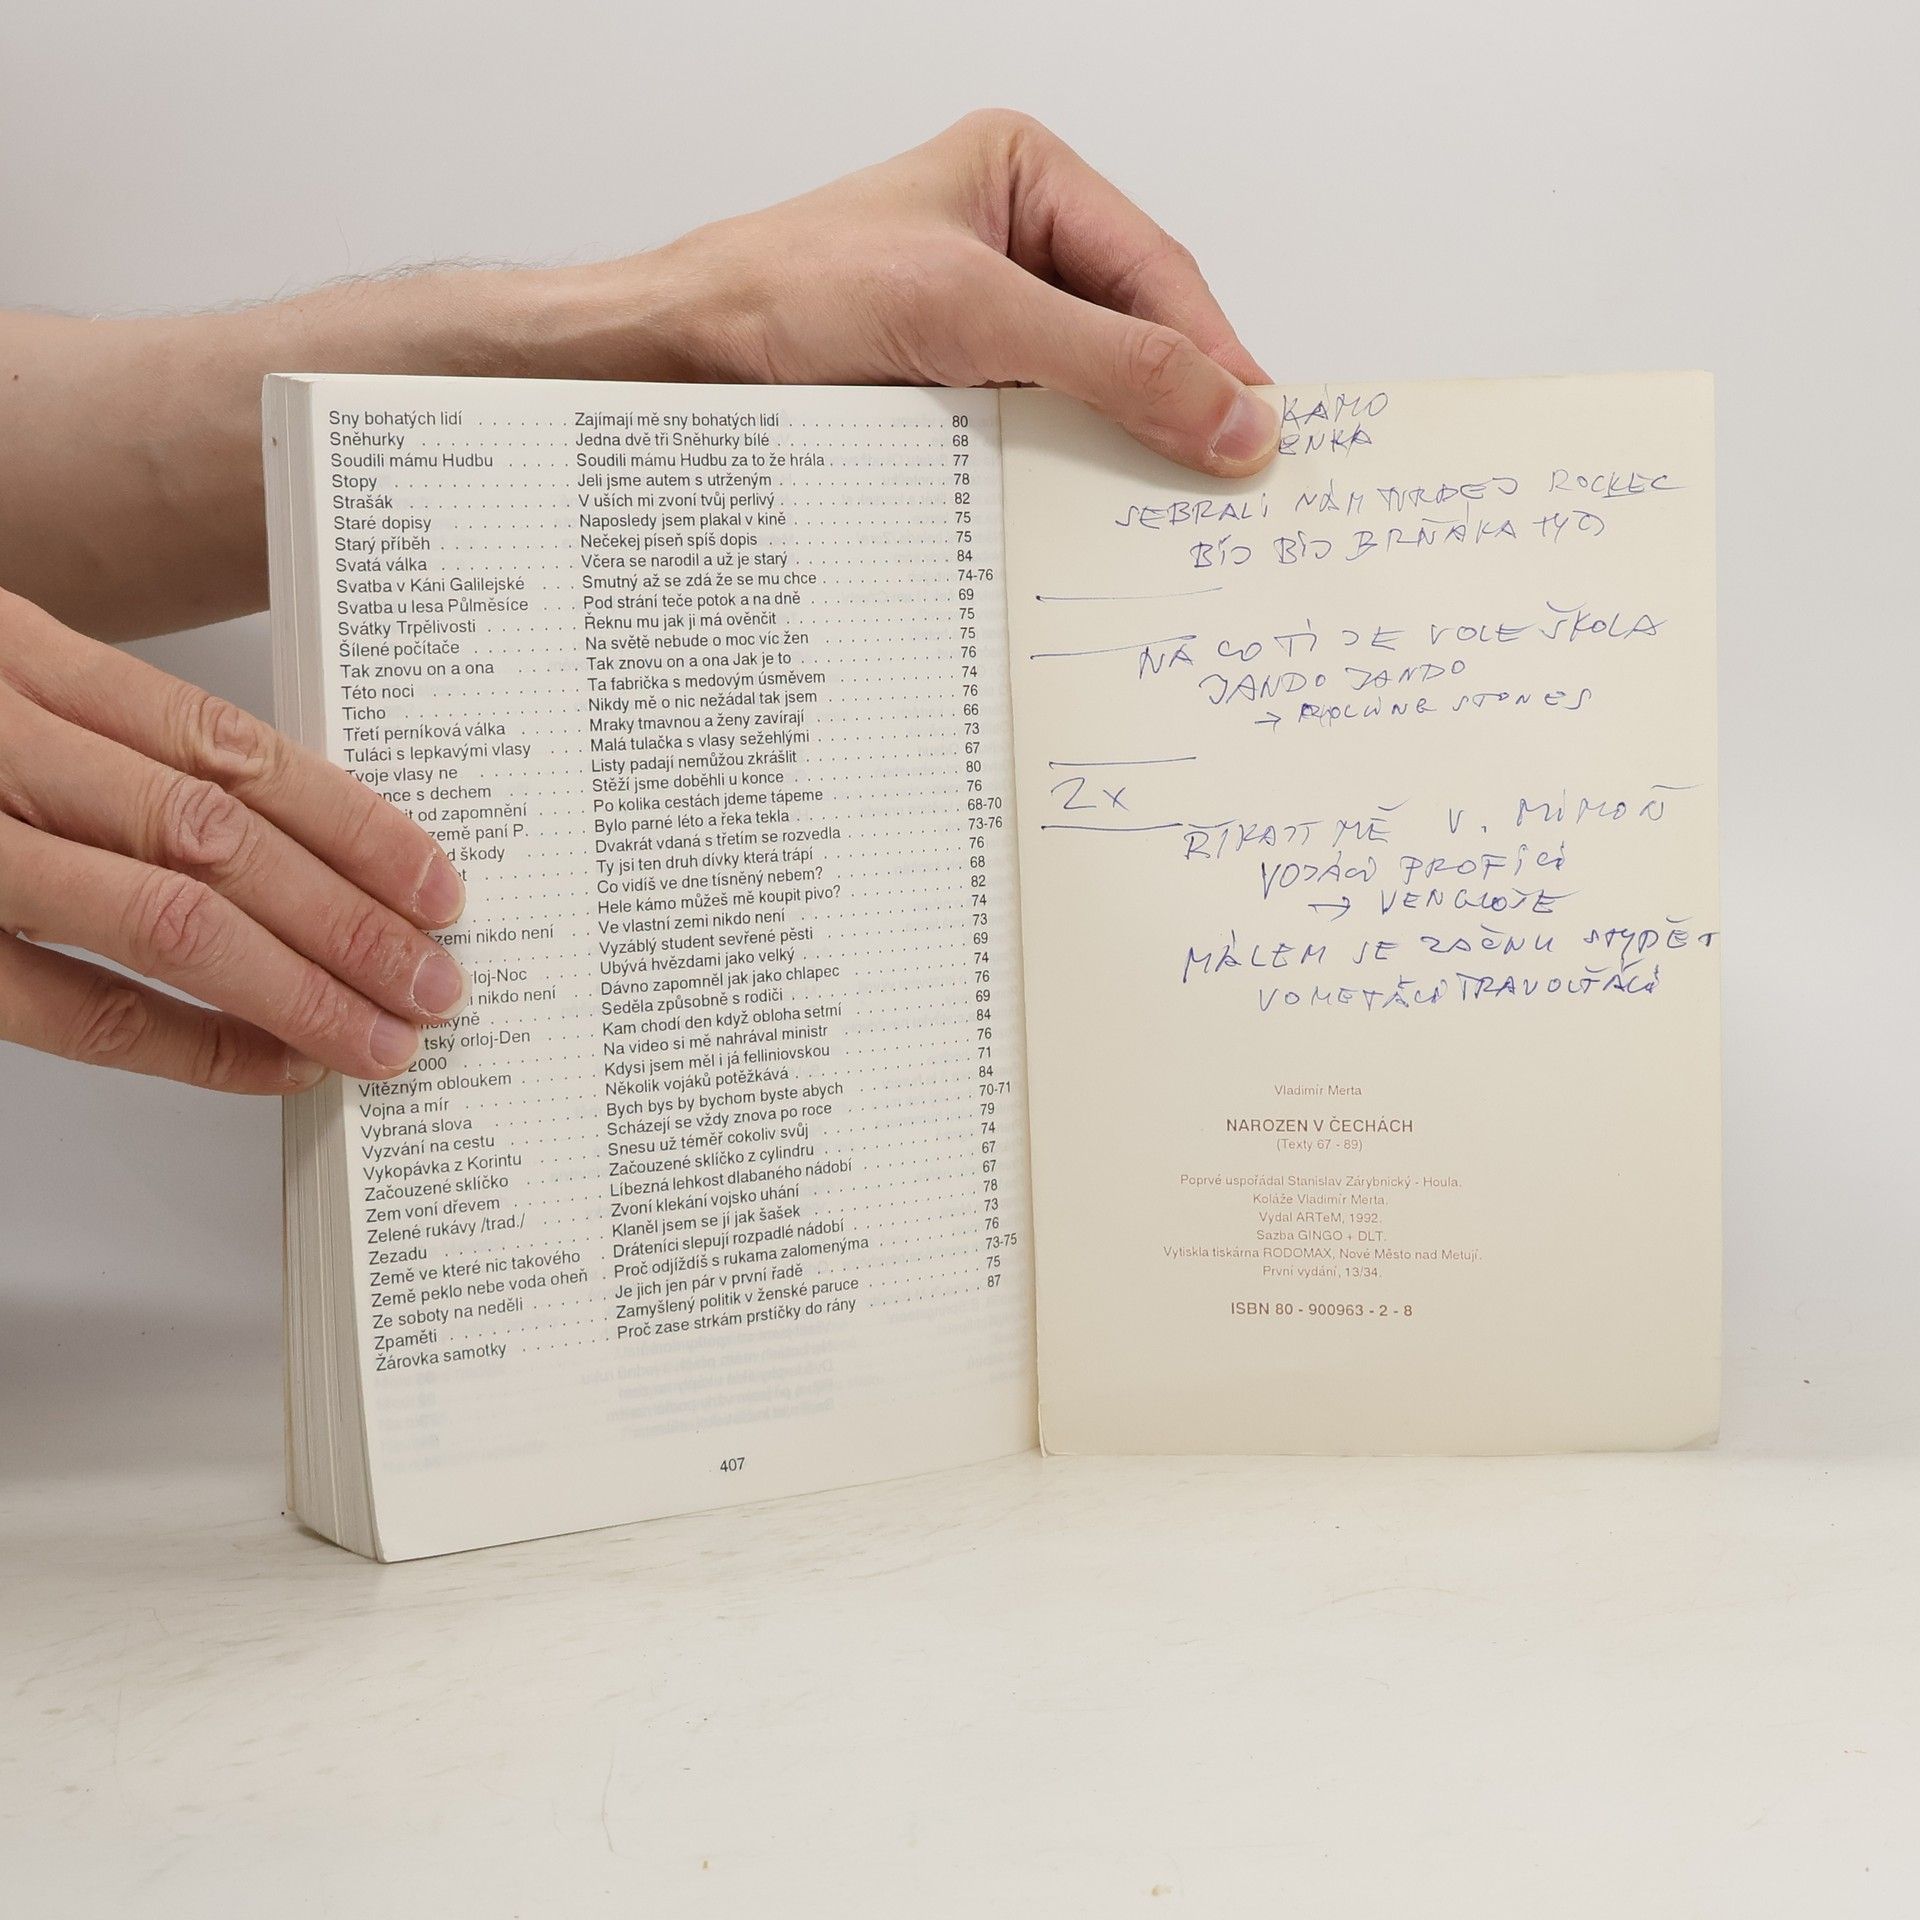 Sny bohatých lidí . . . . . . . Zajímají mě sny bohatých lidí . . . . . . . . . . . . . 80
Sněhurky . . . . . . . . . . . Jedna dvě tři Sněhurky bílé . . . . . . . . . . . . . . 68
Soudili mámu Hudbu . . . . . Soudili mámu Hudbu za to že hrála . . . . . . . . . . 77
Stopy . . . . . . . . . . . . . Jeli jsme autem s utrženým . . . . . . . . . . . . . . 78
Strašák . . . . . . . . . . . . V uších mi zvoní tvůj perlivý . . . . . . . . . . . . . . 82
Staré dopisy . . . . . . . . . Naposledy jsem plakal v kině . . . . . . . . . . . . . 75
Starý příběh . . . . . . . . . . Nečekej píseň spíš dopis . . . . . . . . . . . . . . . 75
Svatá válka . . . . . . . . . . Včera se narodil a už je starý . . . . . . . . . . . . . 84
Svatba v Káni Galilejské . . . Smutný až se zdá že se mu chce . . . . . . . . . . . 74-76
Svatba u lesa Půlměsíce . . . Pod strání teče potok a na dně . . . . . . . . . . . . 69
Svátky Trpělivosti . . . . . . . Řeknu mu jak ji má ověnčit . . . . . . . . . . . . . . 75
Šílené počítače . . . . . . . . Na světě nebude o moc víc žen . . . . . . . . . . . . 75
Tak znovu on a ona . . . . . . Tak znovu on a ona Jak je to . . . . . . . . . . . . . 76
Této noci . . . . . . . . . . . Ta fabrička s medovým úsměvem . . . . . . . . . . . 74
Ticho . . . . . . . . . . . . . Nikdy mě o nic nežádal tak jsem . . . . . . . . . . . 76
Třetí perníková válka . . . . . Mraky tmavnou a ženy zavírají . . . . . . . . . . . . 66
Tuláci s lepkavými vlasy . . . Malá tulačka s vlasy sežehlými . . . . . . . . . . . . 73
Tvoje vlasy ne . . . . . . . . Listy padají nemůžou zkrášlit . . . . . . . . . . . . . 67
s dechem . . . . . . Stěží jsme doběhli u konce . . . . . . . . . . . . . . 80
od zapomnění . . . . Po kolika cestách jdeme tápeme . . . . . . . . . . . 76
země paní P. . . . . . Bylo parné léto a řeka tekla . . . . . . . . . . . . . . 68-70
škody . . . . . . Dvakrát vdaná s třetím se rozvedla . . . . . . . . . . 73-76
Ty jsi ten druh dívky která trápí . . . . . . . . . . . . 76
Co vidíš ve dne tísněný nebem? . . . . . . . . . . . 68
Hele kámo můžeš mě koupit pivo? . . . . . . . . . . 82
zemi nikdo není . . Ve vlastní zemi nikdo není . . . . . . . . . . . . . . 74
Vyzáblý student sevřené pěsti . . . . . . . . . . . . . 73
rloj-Noc . . . . . Ubývá hvězdami jako velký . . . . . . . . . . . . . . 69
nikdo není . . Dávno zapomněl jak jako chlapec . . . . . . . . . . . 74
. . . . . . . . Seděla způsobně s rodiči . . . . . . . . . . . . . . . 76
tský orloj-Den . . . . . Kam chodí den když obloha setmí . . . . . . . . . . . 69
2000 . . . . . . . . . Na video si mě nahrával ministr . . . . . . . . . . . . 84
Vítězným obloukem . . . . . . Kdysi jsem měl i já felliniovskou . . . . . . . . . . . . 76
Vojna a mír . . . . . . . . . . Několik vojáků potěžkává . . . . . . . . . . . . . . . 71
Vybraná slova . . . . . . . . . Bych bys by bychom byste abych . . . . . . . . . . . 84
Vyzvání na cestu . . . . . . . Scházejí se vždy znova po roce . . . . . . . . . . . . 70-71
Vykopávka z Korintu . . . . . Snesu už téměř cokoliv svůj . . . . . . . . . . . . . . 79
Začouzené sklíčko . . . . . . Začouzené sklíčko z cylindru . . . . . . . . . . . . . 74
Zem voní dřevem . . . . . . . Líbezná lehkost dlabaného nádobí . . . . . . . . . . 67
Zelené rukávy /trad./ . . . . . Zvoní klekání vojsko uhání . . . . . . . . . . . . . . 67
Zezadu . . . . . . . . . . . . Klaněl jsem se jí jak šašek . . . . . . . . . . . . . . 78
Země ve které nic takového . Dráteníci slepují rozpadlé nádobí . . . . . . . . . . . 73
Země peklo nebe voda oheň . Proč odjíždíš s rukama zalomenýma . . . . . . . . . 76
Ze soboty na neděli . . . . . . Je jich jen pár v první řadě . . . . . . . . . . . . . . 73-75
Zpaměti . . . . . . . . . . . . Zamyšlený politik v ženské paruce . . . . . . . . . . 75
Žárovka samotky . . . . . . . Proč zase strkám prstíčky do rány . . . . . . . . . . 87
407
KÁMO
ENKA
SEBRALI NÁM TVRDEJ ROCKEC
BÍJ BÍJ BRŇÁKA TYJ
NA CO TI JE VOLE ŠKOLA
JANDO JANDO
→ ROLLING STONES
2x
ŘÍKAJÍ MĚ V. MIMOŇ
VOJÁCI PROFÍCI
→
MÁLEM SE ZAČNU STYDĚT
VOMETÁCI TRAVOLŤÁCI
Vladimír Merta
NAROZEN V ČECHÁCH
(Texty 67 - 89)
Poprvé uspořádal Stanislav Zárybnický - Houla.
Koláže Vladimír Merta.
Vydal ARTeM, 1992.
Sazba GINGO + DLT.
Vytiskla tiskárna RODOMAX, Nové Město nad Metují.
První vydání, 13/34.
ISBN 80 - 900963 - 2 - 8